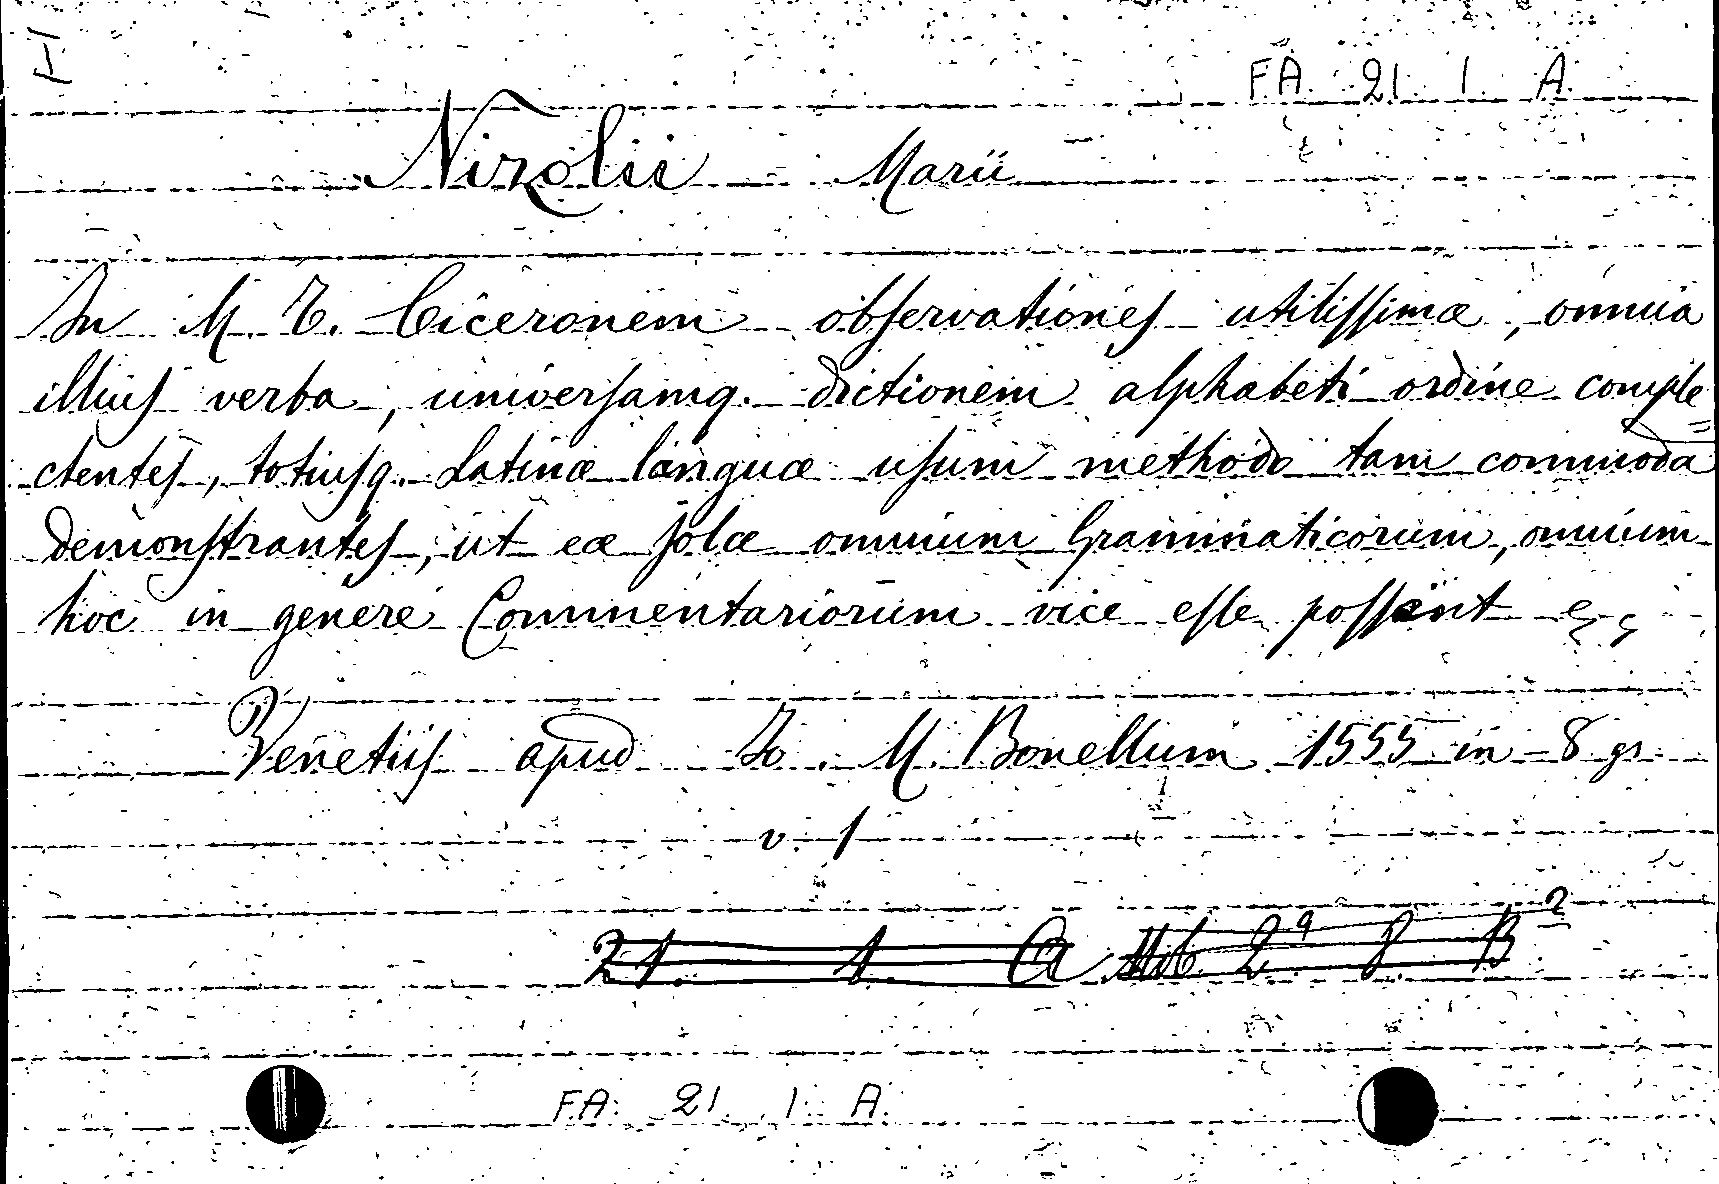 F.A. 21. 1. A.
Nizolii Marii
In M. T. Ciceronem obſervationeſ utiliſſimæ, omnia
illiuſ verba, univerſamq. dictionem alphabeti ordine comple
ctenteſ, totiuſq. Latinæ linguæ uſum methodo tam commoda
demonſtranteſ, ut eæ ſolæ omnium Grammaticorum, omnium
hoc in genere Commentariorum vice eſſe poſſint
Venetiiſ apud Io. M. Bonellum 1555 in 8 gr
v. 1
21. 1. A 2ª 8. B²
F.A. 21. 1. A.